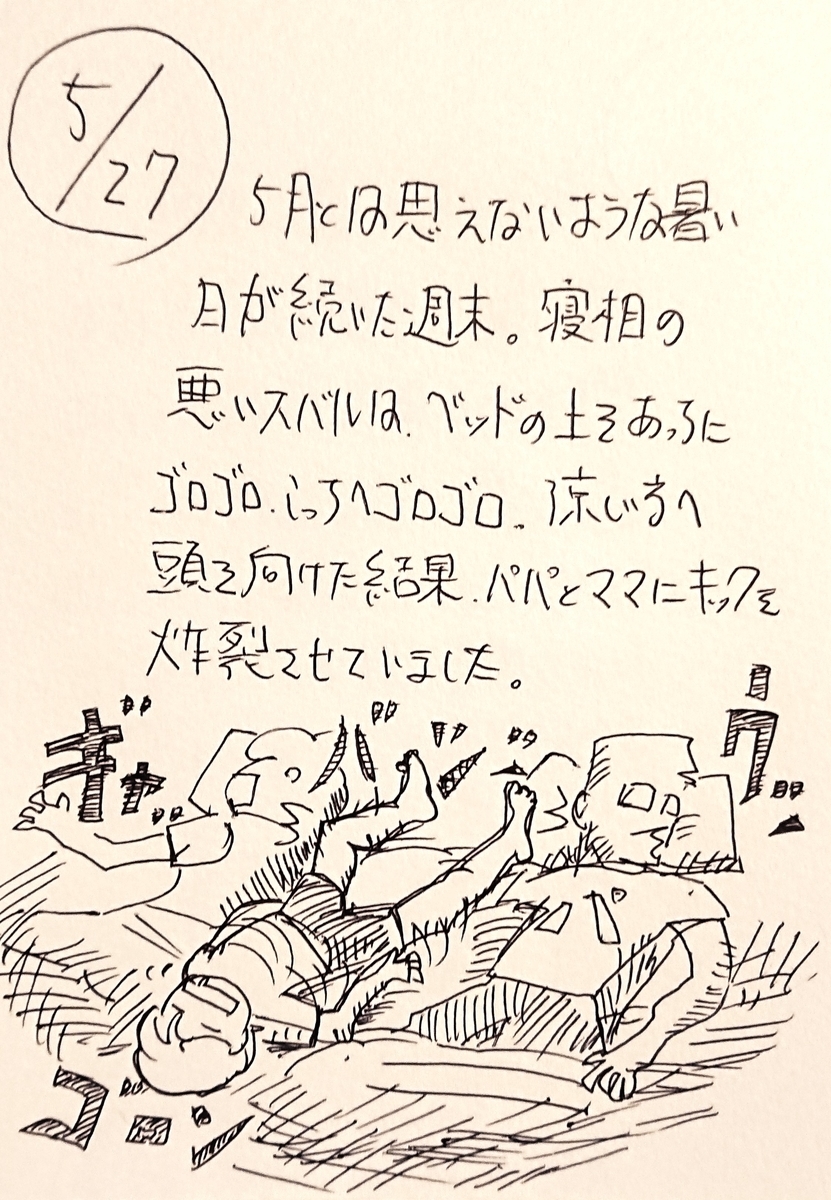 5/27
5月とは思えないような暑い
日が続いた週末。寝相の
悪いスバルは、ベッドの上をあっちに
ゴロゴロ、こっちへゴロゴロ。涼しい方へ
頭を向けた結果、パパとママにキックを
炸裂させていました。
ギャ
パパ